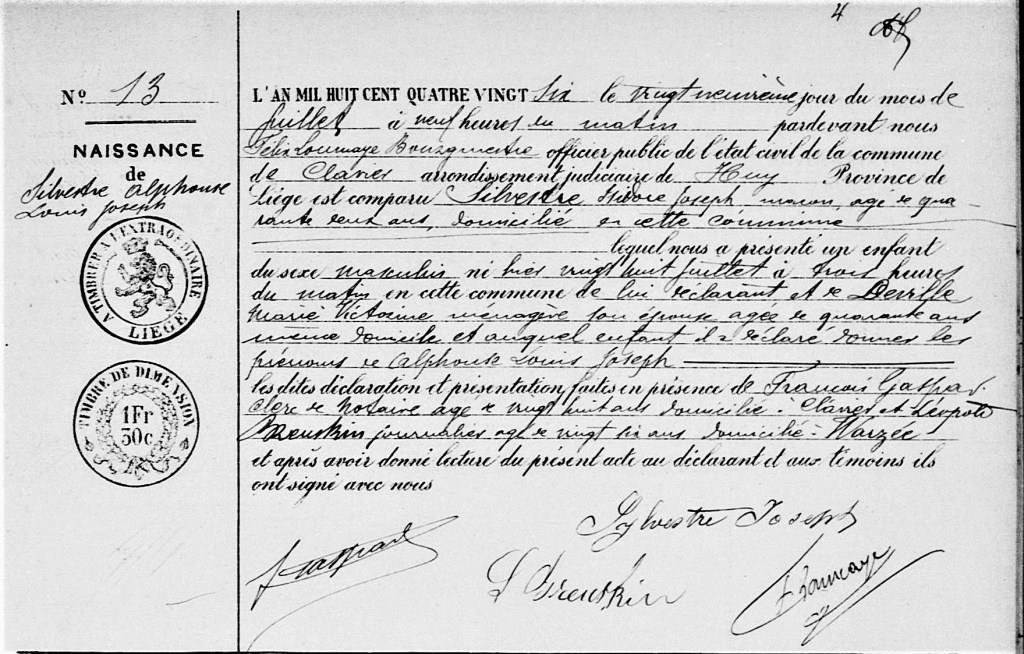 4
Nº 13
NAISSANCE
de
Silvestre Alphonse
Louis Joseph
A TIMBRER A L'EXTRAORDINAIRE
LIEGE
TIMBRE DE DIMENSION
1 Fr
30 c.
L'AN MIL HUIT CENT QUATRE VINGT Six le vingt neuvième jour du mois de
Juillet à neuf heures du matin pardevant nous
Félix Loumaye Bourgmestre officier public de l'état civil de la commune
de Clavier arrondissement judiciaire de Huy Province de
Liége est comparu Silvestre Isidore Joseph, maçon, âgé de qua-
rante ans, domicilié en cette commune
lequel nous a présenté un enfant
du sexe masculin né hier vingt huit Juillet à trois heures
du matin en cette commune de lui déclarant, et de Deville
Marie Victorine ménagère son épouse agée de quarante ans
même domicile et auquel enfant il a déclaré donner les
prénoms de Alphonse Louis Joseph
les dites déclaration et présentation faites en présence de François Gaspar
Clerc de Notaire âgé de vingt huit ans domicilié à Clavier et Léopold
Dreuskin journalier agé de vingt six ans domicilié à Warzée
et après avoir donné lecture du présent acte au déclarant et aux témoins ils
ont signé avec nous
Sylvestre Joseph
F Gaspard
L Dreuskin
F Loumaye